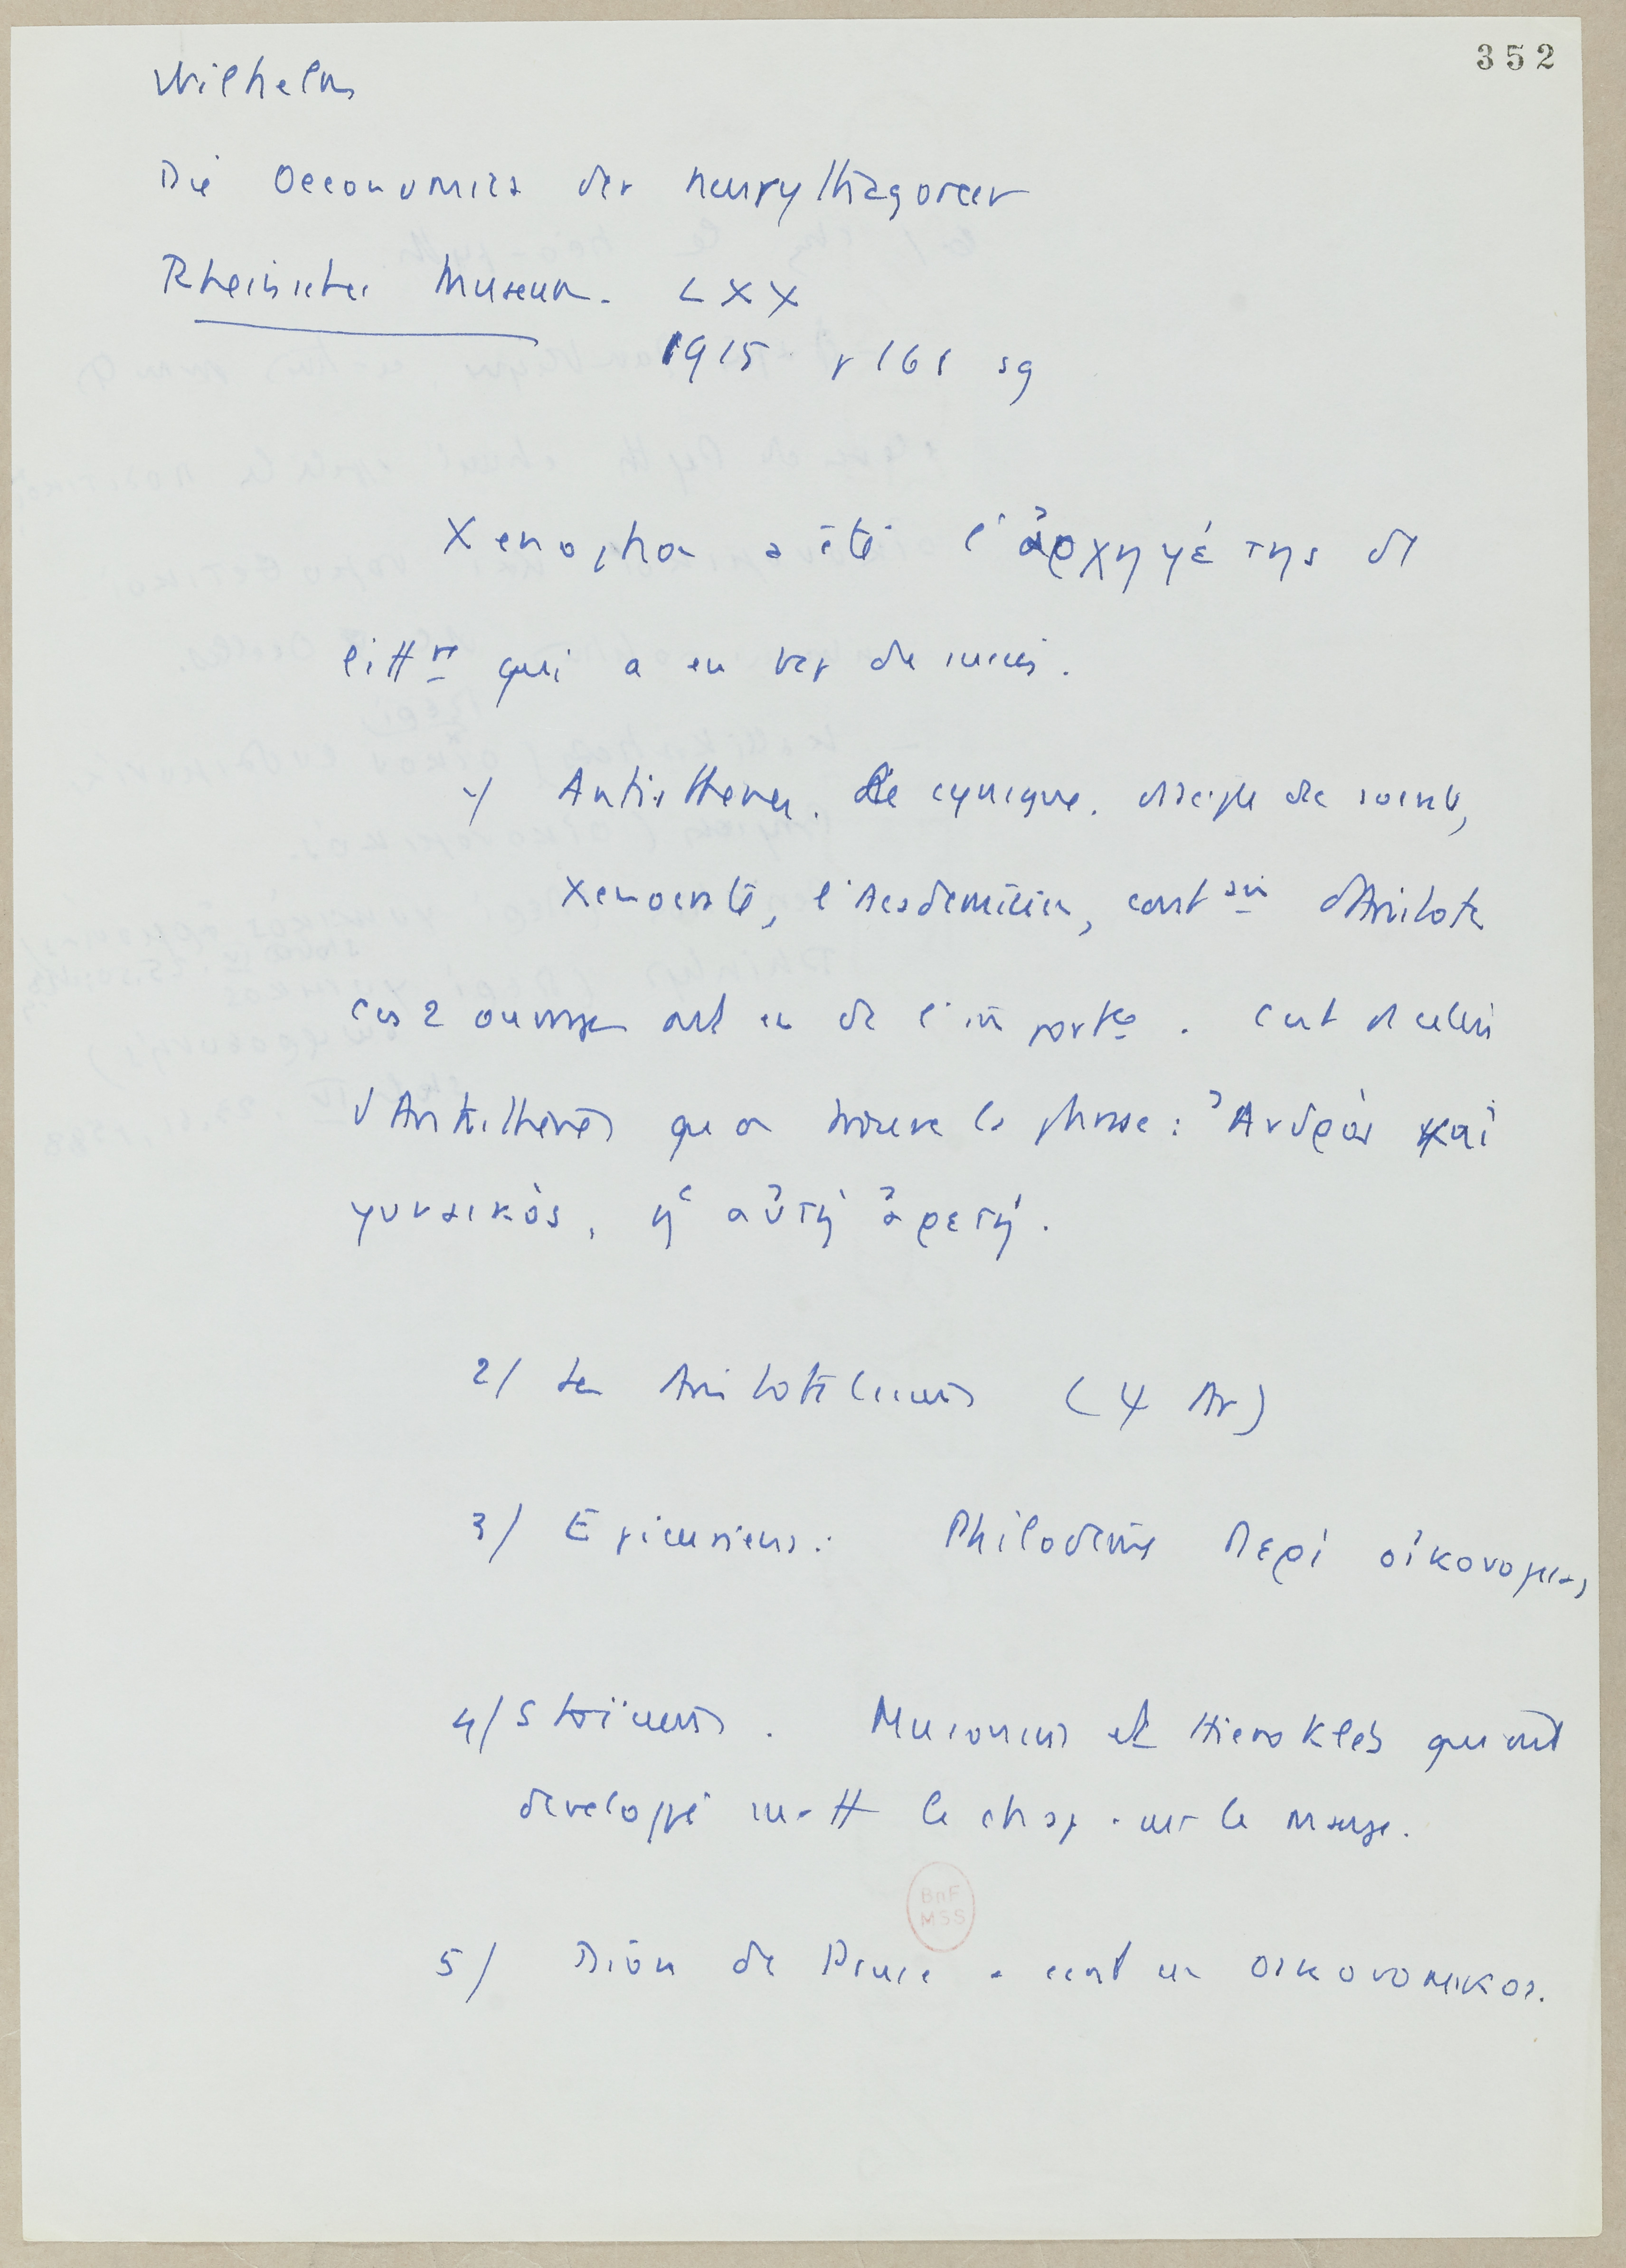 352
Wilhelm
Die Oeconomica der Neupythagoreer
Rheinisches Museum. LXX
1915 p 161 sq
Xenophon a été l'ἀρχηγέτης de
littre qui a eu bcp de succès.
1/ Antisthenes. Le cynique. disciple de Socrate,
Xenocrate, l'Academicien, contain d'Aristote
Ces 2 ouvrages ont eu de l'importce. C'est de celui
d'Antisthenes que on trouve la phrase : Ἀνδρὸς καὶ
γυναικὸς, ἡ αὐτὴ ἀρετή.
2/ Les Aristoteliciens (Ψ Ar)
3/ Epicuriens : Philodème Περὶ οἰκονομίας
4/ Stoïciens. Musonius et Hierokles qui ont
developpé surtt le chap. sur le mariage.
5/ Dion de Pruse a ecrit un οικονομικος.
BnF
MSS